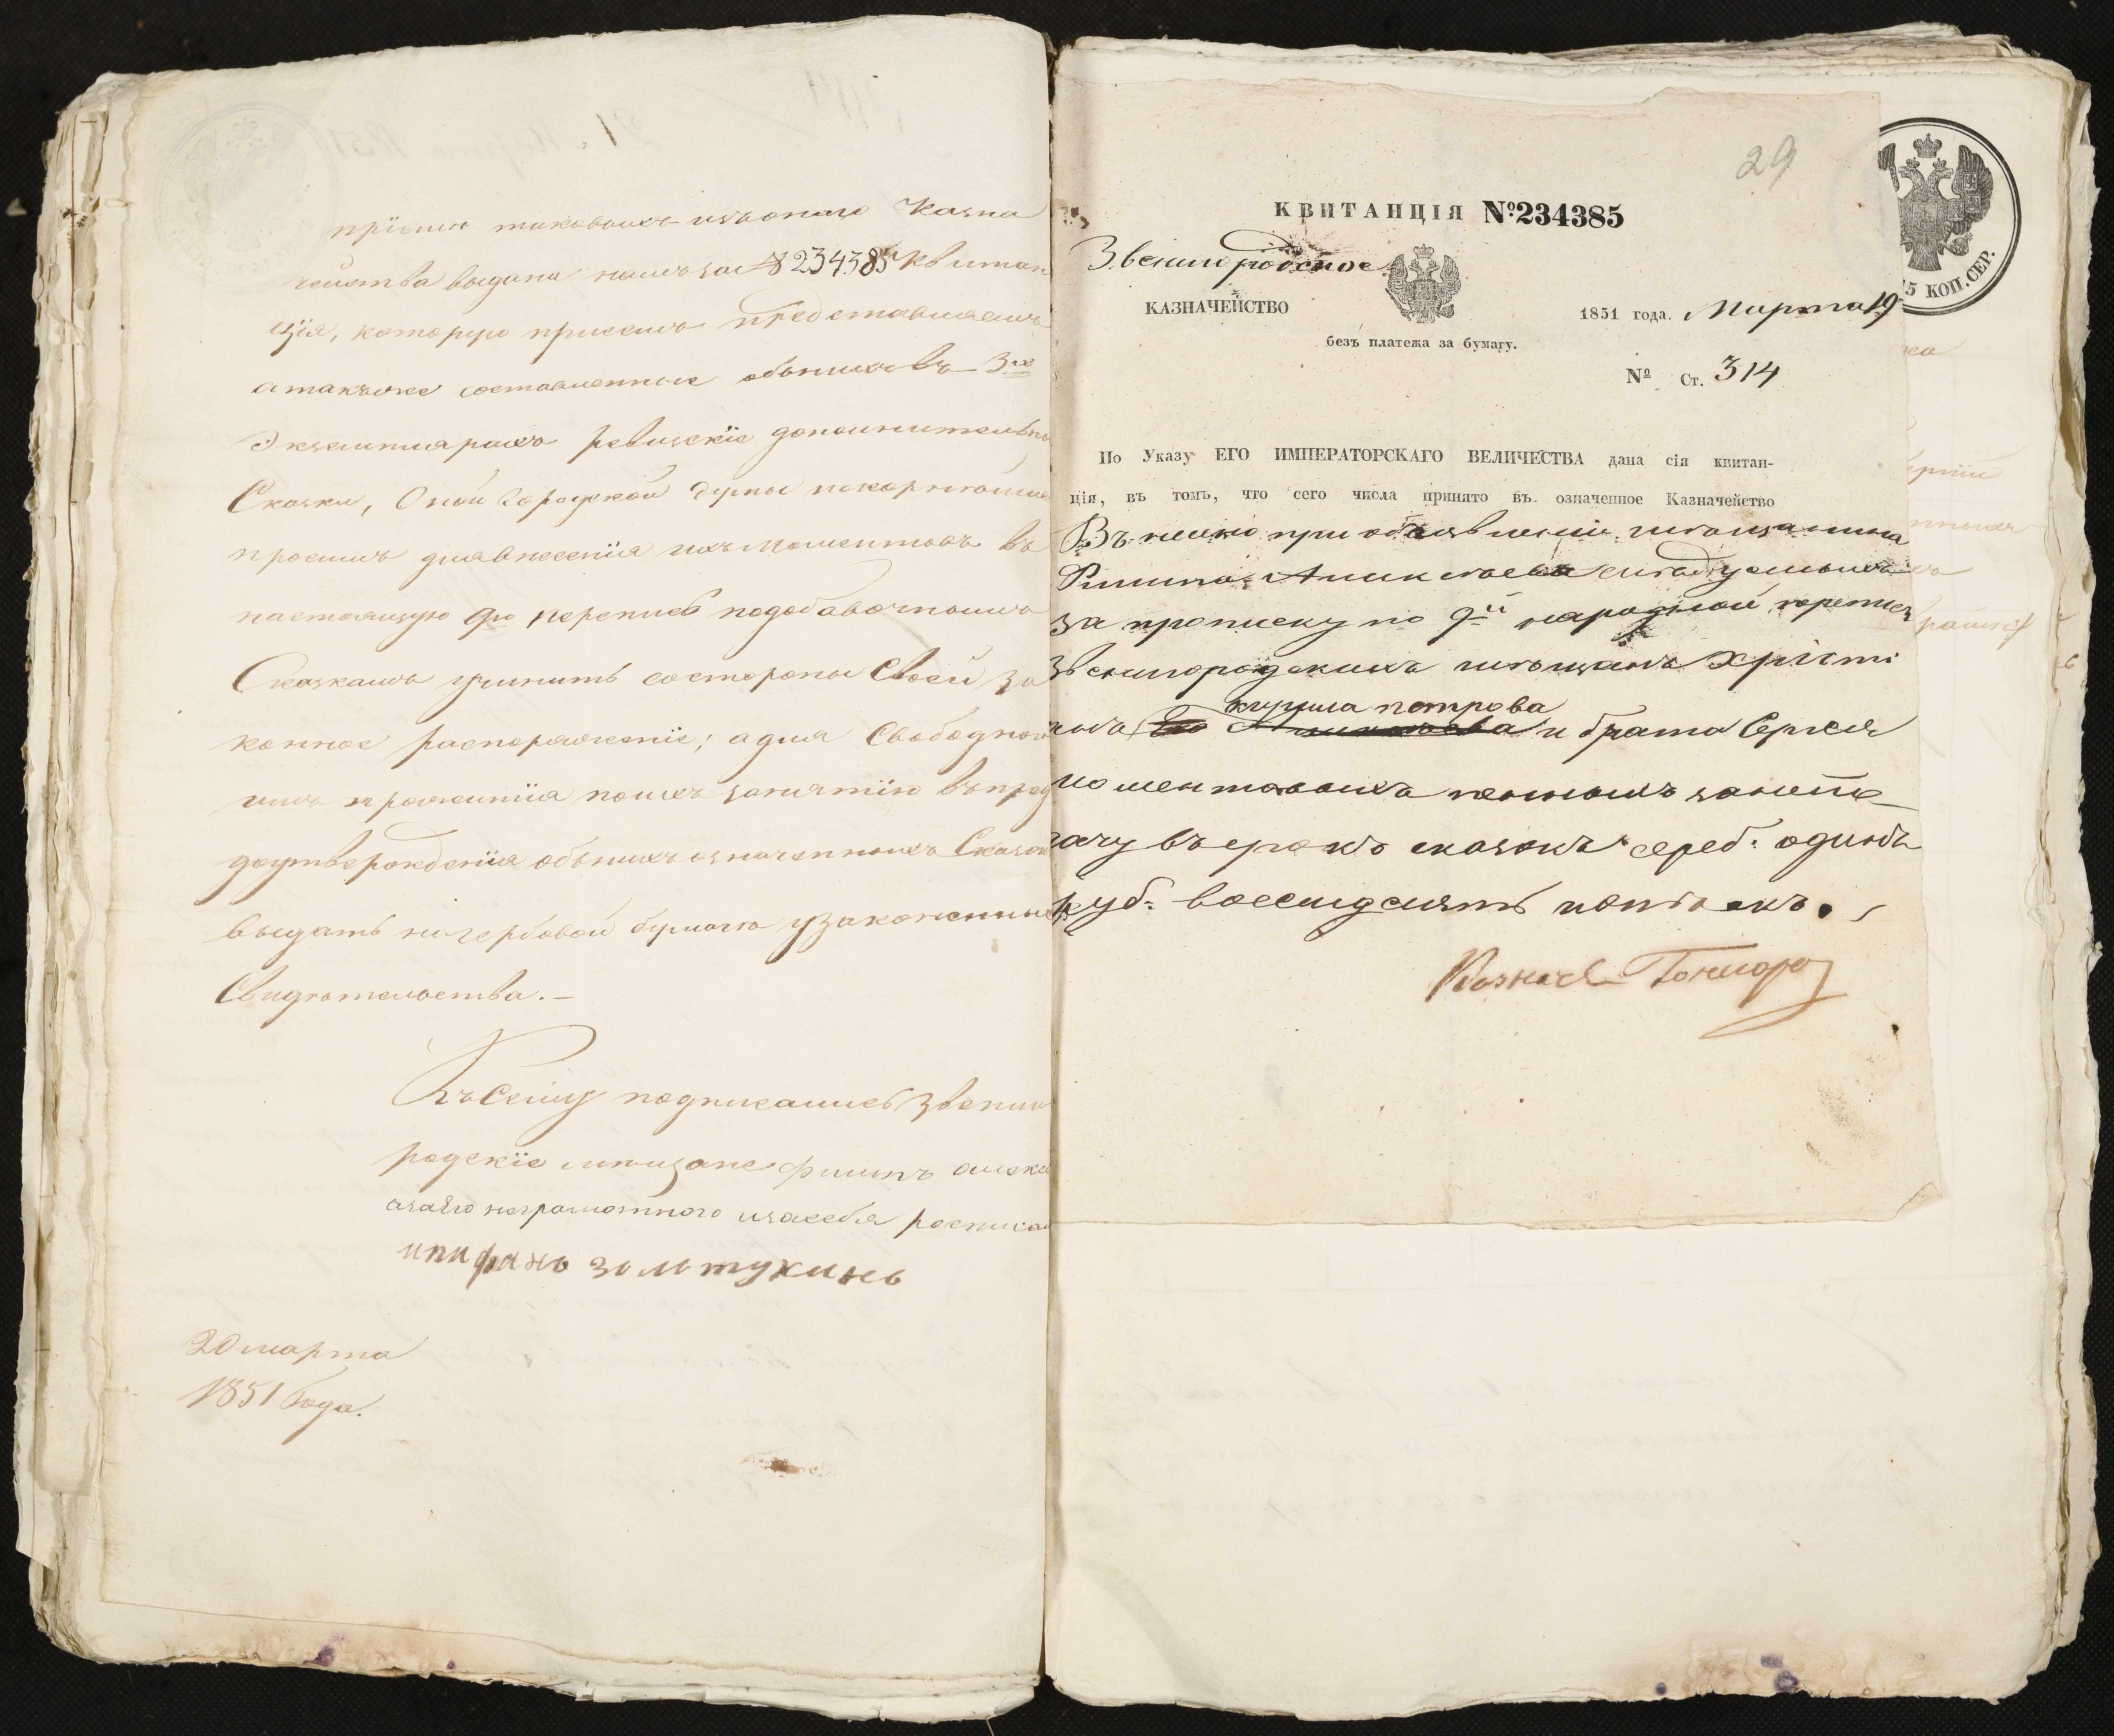 пріемѣ таковыхъ изъ онаго Казна
чейства выдана намъ за № 234385м Квитан
ція, которую при семъ представляемъ
а также составленные объ нихъ въ 3хъ
Экземплярахъ ревизскіе дополнительные
Сказки, Оной Городской Думы покорнѣйше
просимъ для внесенія ихъ моментовъ въ
настоящую 9ю перепись подобавочнымъ
Сказкамъ учинить со стороны Своей за
конное распоряженіе; а для Свободнаго
имъ прожитія по ихъ занятію впредь
до утвержденія объ нихъ означенныхъ Сказокъ
выдать на гербовой бумагѣ узаконенные
Свидѣтельства.-
Къ Сему подписались Звениго
родскіе мѣщане филипъ алекс
а за его неграмотного и за себя росписал
ипифанъ золотухинъ
20 марта
1851 Года.
29
КВИТАНЦІЯ №234385
Звенигородское
КАЗНАЧЕЙСТВО
1851 года. Марта 19
безъ платежа за бумагу.
№ Ст. 314
По Указу ЕГО ИМПЕРАТОРСКАГО ВЕЛИЧЕСТВА дана сія квитан-
ція, въ томъ, что сего числа принято въ означенное Казначейство
при объявленіи мѣщанина
Филипа слѣдуемыхъ
за прописку по 9й народной переписи
Звенигородскихъ мѣщанъ Христі
кирила петрова
и брата Сергея
за непо
дачу въ срокъ сказокъ сереб: одинъ
руб: восемдесятъ копѣекъ.
Казначей
5 КОП. СЕР.